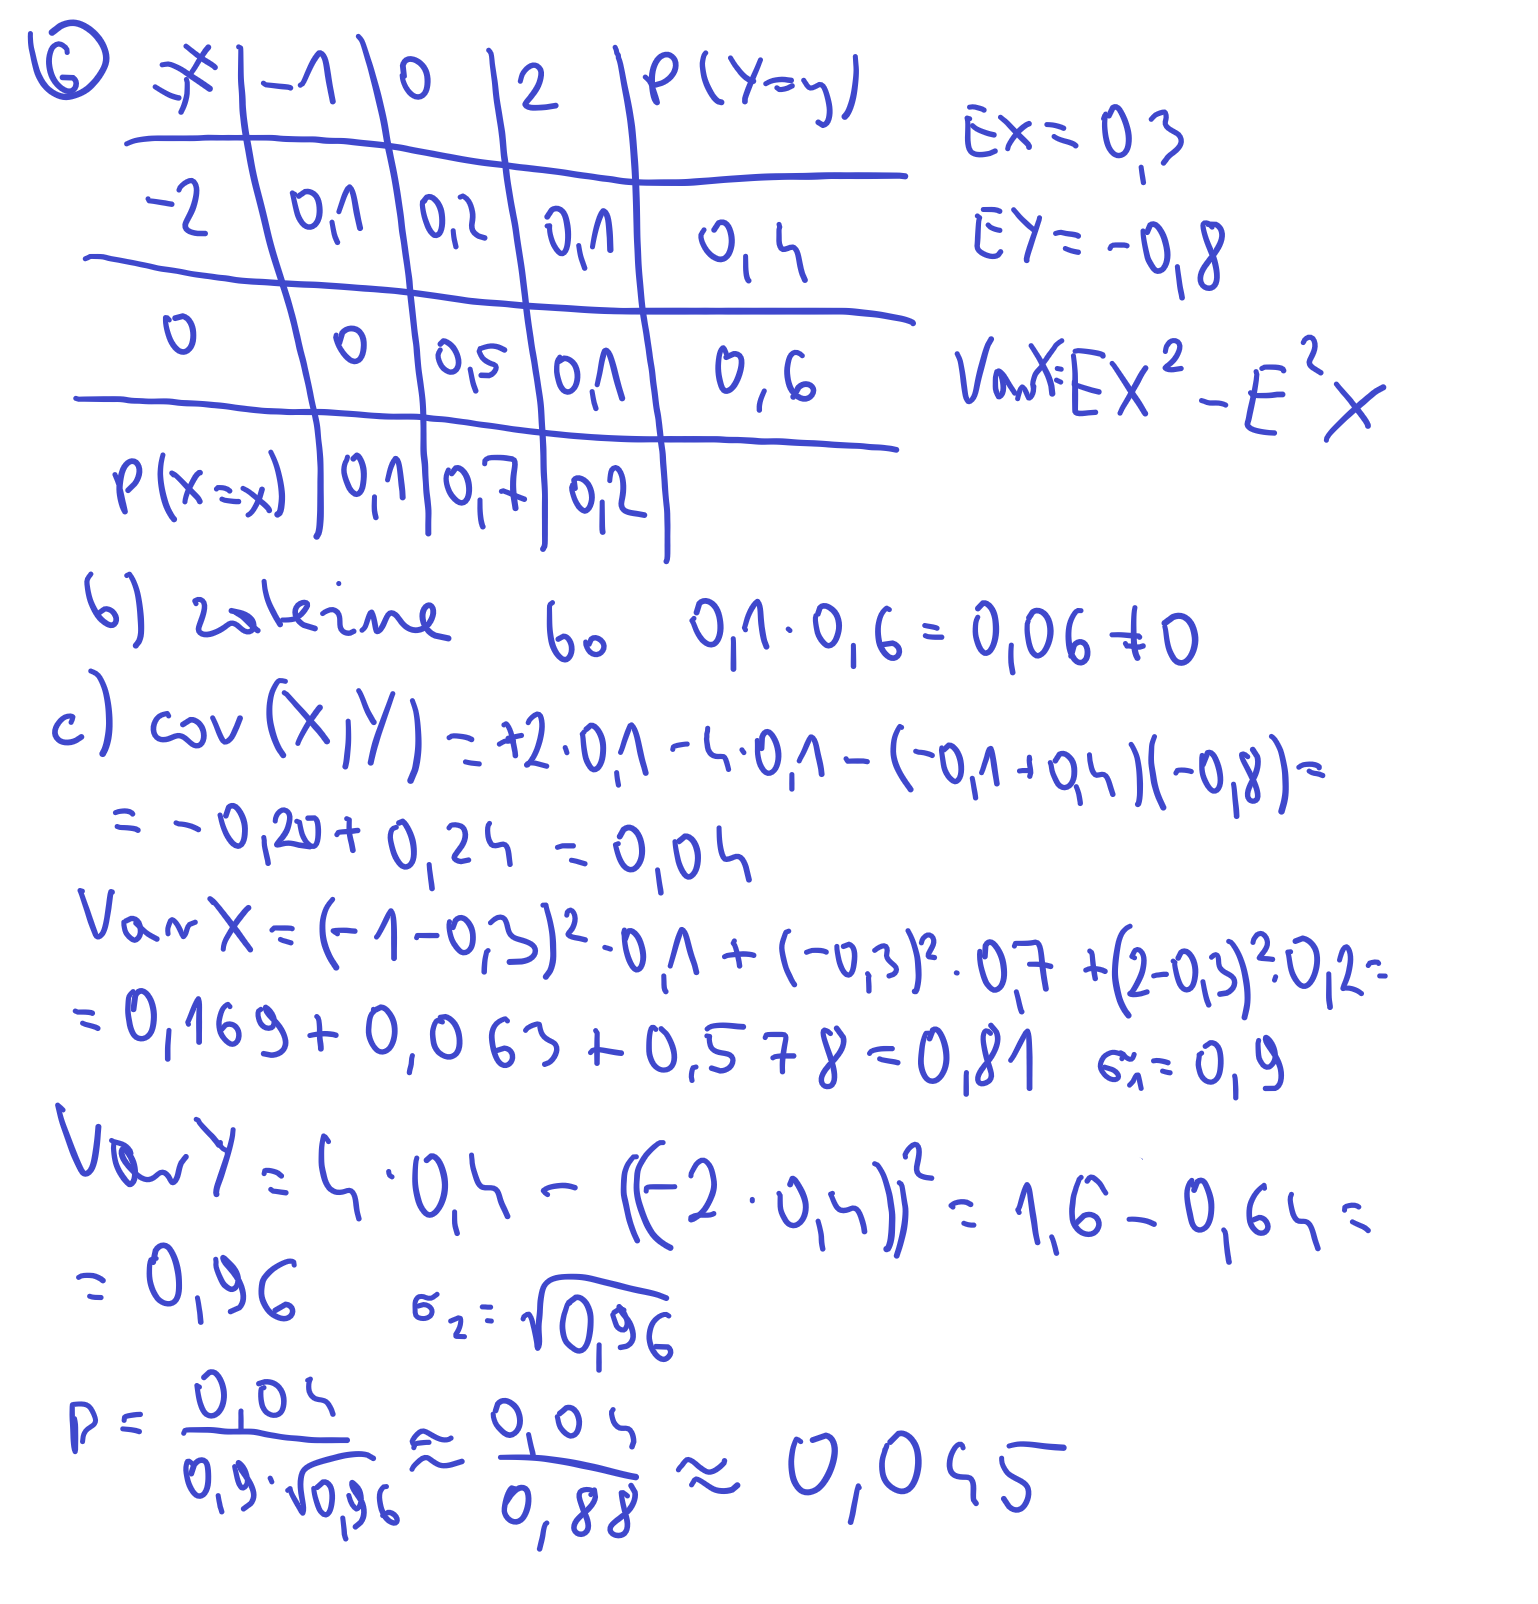 6
y\x -1 0 2 P(Y=y)
-2 0,1 0,2 0,1 0,4
0 0 0,5 0,1 0,6
P(X=x) 0,1 0,7 0,2
EX = 0,3
EY = -0,8
VarX = EX² - E²X
b) zależne bo 0,1 · 0,6 = 0,06 ≠ 0
c) cov(X,Y) = +2 · 0,1 - 4 · 0,1 - (-0,1 + 0,4)(-0,8) =
= -0,20 + 0,24 = 0,04
Var X = (-1-0,3)² · 0,1 + (-0,3)² · 0,7 + (2-0,3)² · 0,2 =
= 0,169 + 0,063 + 0,578 = 0,81 σ₁ = 0,9
Var Y = 4 · 0,4 - ((-2 · 0,4))² = 1,6 - 0,64 =
= 0,96 σ₂ = √0,96
ρ = 0,04 / 0,9 · √0,96 ≈ 0,04 / 0,88 ≈ 0,045